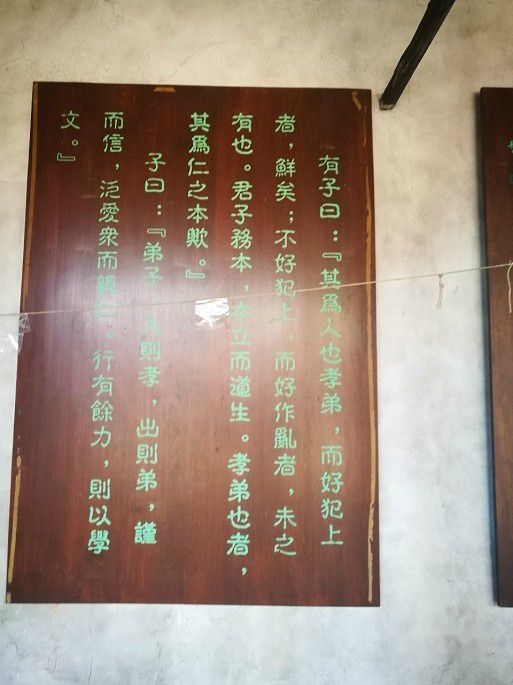 有子曰：『其為人也孝弟，而好犯上
者，鮮矣；不好犯上，而好作亂者，未之
有也。君子務本，本立而道生。孝弟也者，
其為仁之本歟。』
子曰：『弟子入則孝，出則弟，謹
而信，汎愛眾而親仁。行有餘力，則以學
文。』